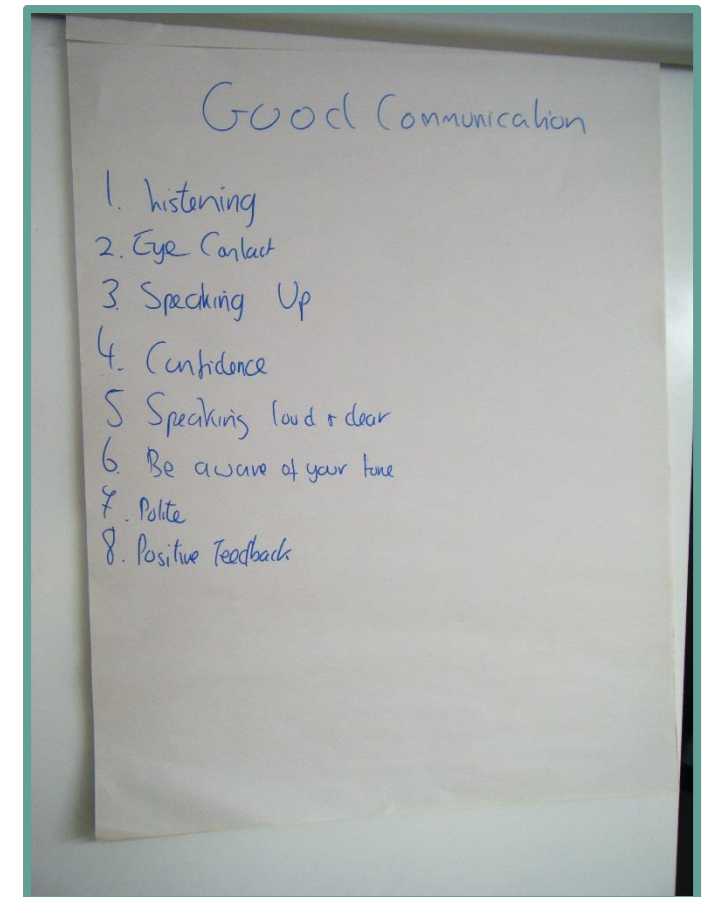 Good Communication
1. Listening
2. Eye Contact
3. Speaking Up
4. Confidence
5 Speaking loud + clear
6. Be aware of your tone
7. Polite
8. Positive Feedback